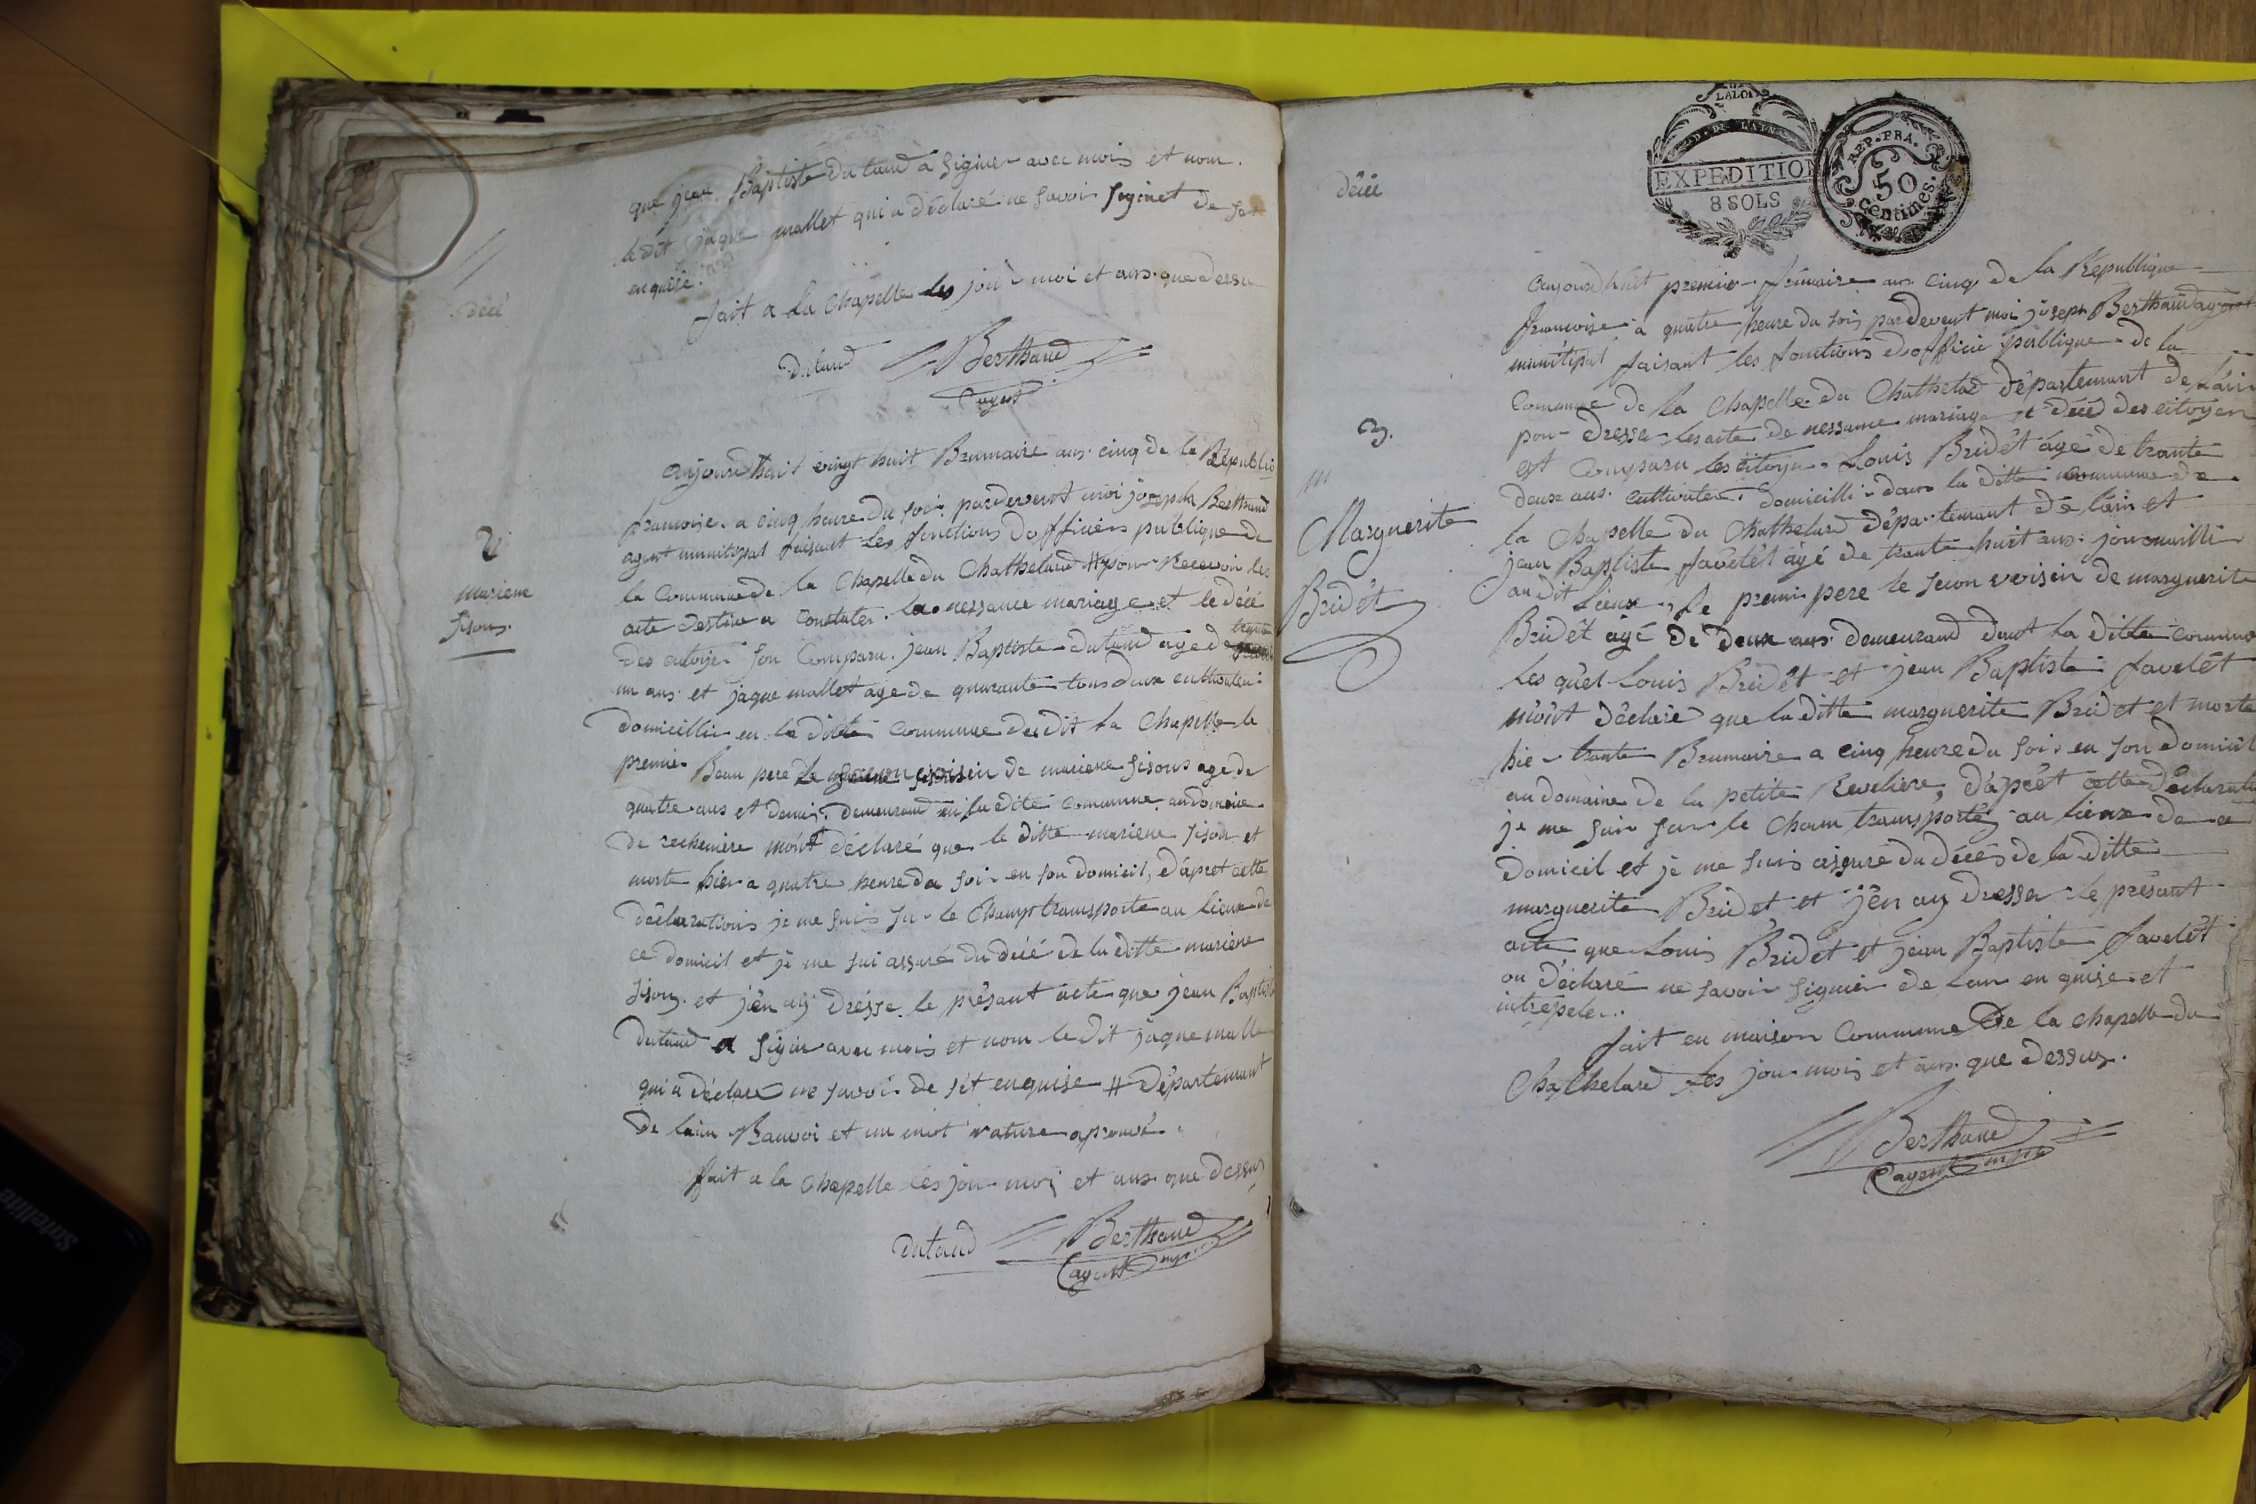 que jean Baptiste dutaud a signer avec mois et nom.
le dit jaque mallet qui a déclaré ne savoir signiet de
enquise.
fait a la chapelle les jou moi et ans que dessu
décé
dutaud Berthaud
agent
aujourdhait vingt huit Brumaire ans cinq de la Républi
francoise a cinq heure du soir pardevent moi joseph Berthaud
agent munitipal faisant les fonctions dofficiers publique de
2
la Commune de la Chapelle du Chathelard # pour Recevoir les
mariene
acte destine a Constater la nessance mariage et le décé
sison.
trente
des citoyen son Comparu jean Baptiste dutaud age de
un ans et jaque mallet age de quarante tous deux cultivateu
domicillie en la ditte Commune dudit la Chapelle le
premier Beau pere le second voisin de mariene sisons age de
quatre ans et demis demeurand en la dite Commune au domeine
de rechenière mont déclaré que le ditte mariene sison et
morte hier a quatre heure du soir en son domicil, d'apret cette
déclarations je me suis su le Champ transporté au lieux de
ce domicil et je me sui assuré du décé de la ditte mariene
sison et jen aÿ dressé le présant acte que jean Baptist
dutaud a signer avec mois et nom le dit jaque malle
qui a déclaré ne savoir de set enquise # Département
de lain Ranvoi et un mot rature aprouvé
fait a la chapelle les jou moi et ans que dessus
dutaud Berthaud
agent mpal
décé
LA LOI
D. DE L'AIN
EXPEDITION
8 SOLS
REP. FRA.
50
Centimes.
aujourdhuit premier frimaire ans cinq de la République
francoise a quatre heure du soir pardevent moi joseph Berthaud agent
munitipal faisant les fonctions dofficie publique de la
Comunne de la Chapelle du Chathelard département de lain
3.
pour dresser les acte de nessance mariage et décé des citoyen
est Comparu les citoyen Louis Bridêt âgé de trante
deux ans cultivateu domicillie dans la ditte commune de
Marguerite
la Chapelle du Chathelard département de lain et
jean Baptiste favelêt âgé de trante huit ans journaillie
Bridêt
audit lieux, le premi pere le secon voisin de marguerite
Bridêt âgé de deux ans demeurand dent la ditte commune
les quel Louis Bridêt et jean Baptiste favelêt
m'ont déclaré que la ditte marguerite Bridet et morte
hie trante Brumaire a cinq heure du soir en son domicil
au domaine de la petite Reveliere, d'apret cette déclaration
je me sui sur le cham transporté au lieux de ce
domicil et je me suis assuré du décés de la ditte
marguerite Bridet et j'en ay dresser le présant
acte que Louis Bridet et jean Baptiste favelêt
on déclaré ne savoir signier de lan enquise et
intrepeler.
fait en maison Commune de la chapelle du
Chathelard les jou mois et ans que dessus.
Berthaud
agent mpal